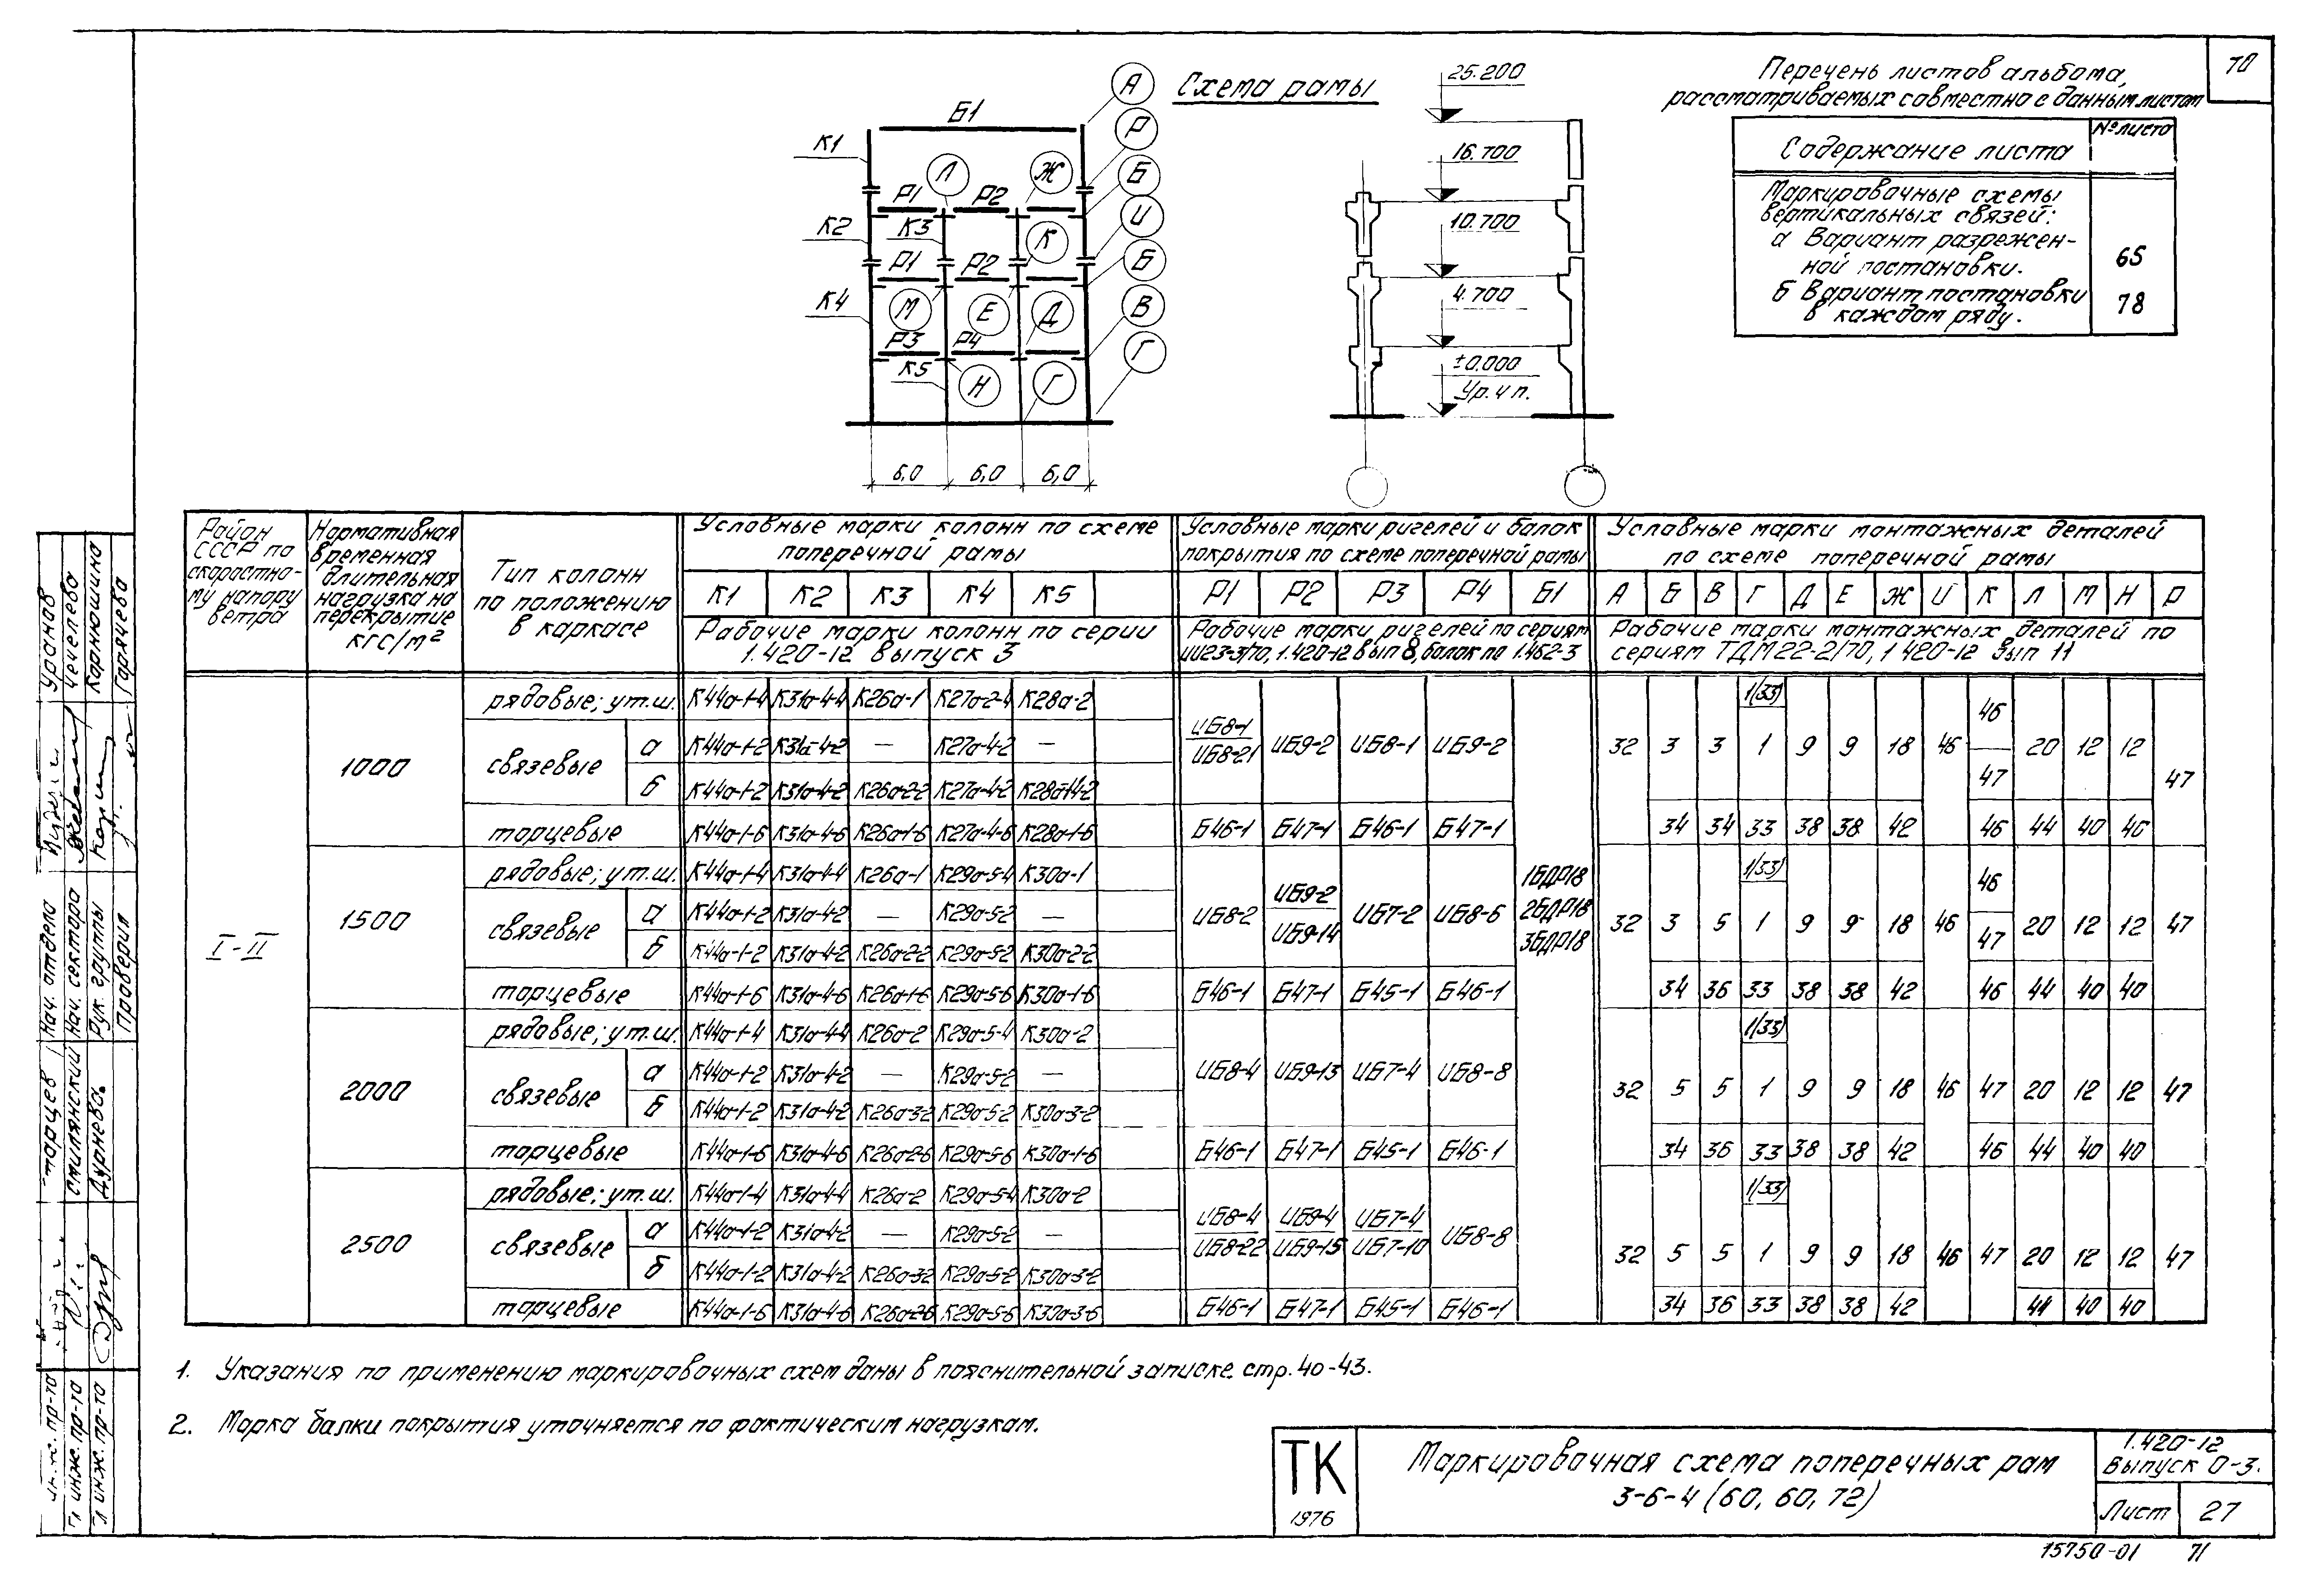 70
Схема рамы
Б1
К1
К2
К3
К4
К5
Р1
Р2
Р1
Р2
Р3
Р4
А
Р
Б
И
Б
В
Г
Л
Ж
К
М
Е
Д
Н
Г
6,0 6,0 6,0
25.200
16.700
10.700
4.700
±0.000
Ур.ч.п.
Перечень листов альбома,
рассматриваемых совместно с данным листом
Содержание листа № листа
Маркировочные схемы
вертикальных связей:
а Вариант разрежен-
ной постановки. 65
б Вариант постановки 78
в каждом ряду.
Район СССР по скоростно-му напору ветра
Нормативная временная длительная нагрузка на перекрытие кгс/м²
Тип колонн по положению в каркасе
Условные марки колонн по схеме поперечной рамы
Условные марки ригелей и балок покрытия по схеме поперечной рамы
Условные марки монтажных деталей по схеме поперечной рамы
К1 К2 К3 К4 К5 Р1 Р2 Р3 Р4 Б1 А Б В Г Д Е Ж И К Л М Н Р
Рабочие марки колонн по серии 1.420-12 выпуск 3
Рабочие марки ригелей по сериям ИИ23-3/70, 1.420-12 вып 8, балок по 1.462-3
Рабочие марки монтажных деталей по сериям ТДМ22-2/70, 1 420-12 вып 11
I-II
1БДР18
2БДР18
3БДР18
1000
рядовые; у т.ш. К44а-1-4 К31а-4-4 К26а-1 К27а-2-4 К28а-2
связевые а К44а-1-2 К31а-4-2 — К27а-4-2 —
б К44а-1-2 К31а-4-2 К26а-2-2 К27а-4-2 К28а-14-2
ИБ8-1 / ИБ8-21 ИБ9-2 ИБ8-1 ИБ9-2
1(33)
32 3 3 1 9 9 18 46 46 / 47 20 12 12 47
торцевые К44а-1-6 К31а-4-6 К26а-1-6 К27а-4-6 К28а-1-6 Б46-1 Б47-1 Б46-1 Б47-1 34 34 33 38 38 42 46 44 40 40
1500
рядовые; у т.ш. К44а-1-4 К31а-4-4 К26а-1 К29а-5-4 К30а-1
связевые а К44а-1-2 К31а-4-2 — К29а-5-2 —
б К44а-1-2 К31а-4-2 К26а-2-2 К29а-5-2 К30а-2-2
ИБ8-2 ИБ9-2 / ИБ9-14 ИБ7-2 ИБ8-6
1(33)
32 3 5 1 9 9 18 46 46 / 47 20 12 12 47
торцевые К44а-1-6 К31а-4-6 К26а-1-6 К29а-5-6 К30а-1-6 Б46-1 Б47-1 Б45-1 Б46-1 34 36 33 38 38 42 46 44 40 40
2000
рядовые; у т.ш. К44а-1-4 К31а-4-4 К26а-2 К29а-5-4 К30а-2
связевые а К44а-1-2 К31а-4-2 — К29а-5-2 —
б К44а-1-2 К31а-4-2 К26а-3-2 К29а-5-2 К30а-3-2
ИБ8-4 ИБ9-13 ИБ7-4 ИБ8-8
1(33)
32 5 5 1 9 9 18 46 47 20 12 12 47
торцевые К44а-1-6 К31а-4-6 К26а-2-6 К29а-5-6 К30а-1-6 Б46-1 Б47-1 Б45-1 Б46-1 34 36 33 38 38 42 46 44 40 40
2500
рядовые; у т.ш. К44а-1-4 К31а-4-4 К26а-2 К29а-5-4 К30а-2
связевые а К44а-1-2 К31а-4-2 — К29а-5-2 —
б К44а-1-2 К31а-4-2 К26а-3-2 К29а-5-2 К30а-3-2
ИБ8-4 / ИБ8-22 ИБ9-4 / ИБ9-15 ИБ7-4 / ИБ7-10 ИБ8-8
1(33)
32 5 5 1 9 9 18 46 47 20 12 12 47
торцевые К44а-1-6 К31а-4-6 К26а-2-6 К29а-5-6 К30а-3-6 Б46-1 Б47-1 Б45-1 Б46-1 34 36 33 38 38 42 44 40 40
1. Указания по применению маркировочных схем даны в пояснительной записке стр. 40-43.
2. Марка балки покрытия уточняется по фактическим нагрузкам.
ТК
1976
Маркировочная схема поперечных рам
3-6-4 (60, 60, 72)
1.420-12
Выпуск 0-3.
Лист 27
15750-01 71
Нач. отдела Уранов
Нач. сектора Чечелева
Рук. группы Карнюшина
Проверил Горячева
инж. пр-та
Гл инж. пр-та Смилянский
Гл инж. пр-та Дурнева